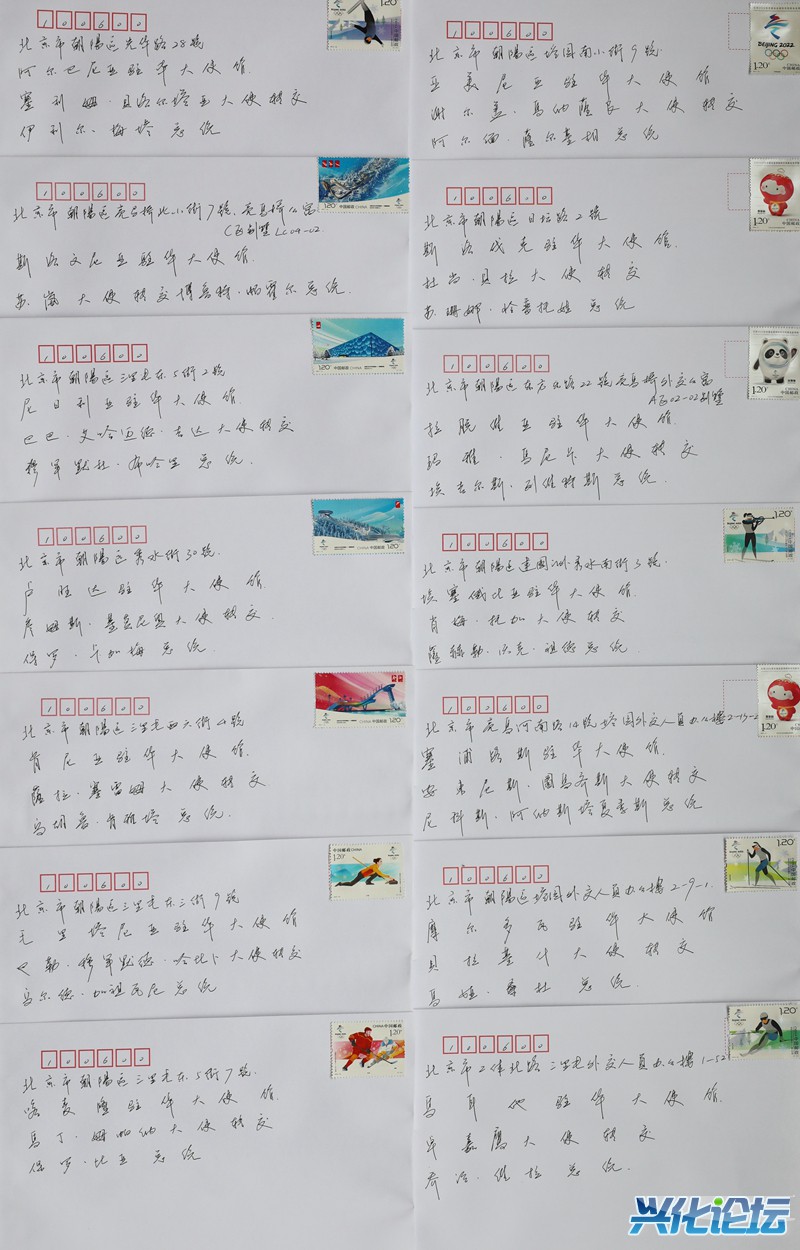 100600
北京市朝陽区光华路28號
阿尔巴尼亚驻华大使馆
塞利姆·贝洛尔塔亚大使转交
伊利尔·梅塔总统
100600
北京市朝陽区塔园南小街9號
亚美尼亚驻华大使馆
谢尔盖·馬纳薩良大使转交
阿尔缅·薩尔基相总统
BEIJING 2022
1.20
100600
北京市朝陽区亮马桥北小街7號,
C区别墅LC04-02
斯洛文尼亚驻华大使馆
苏嵐大使转交博魯特·帕霍尔总统
1.20
100600
北京市朝陽区日坛路2號
斯洛伐克驻华大使馆
杜尚·贝拉大使转交
苏珊娜·恰普托娃总统
100600
北京市朝陽区三里屯东5街2號
尼日利亚驻华大使馆
巴巴·艾哈迈德·吉达大使转交
穆罕默杜·布哈里总统
1.20
100600
北京市朝陽区东方东路22號亮馬桥外交公寓
A区02-02别墅
拉脱维亚驻华大使馆
玛雅·馬尼卡大使转交
埃吉尔斯·列维特斯总统
1.20
100600
北京市朝陽区秀水街30號
卢旺达驻华大使馆
詹姆斯·基莫尼奥大使转交
保罗·卡加梅总统
1.20
100600
北京市朝陽区建国门外秀水南街3號
埃塞俄比亚驻华大使馆
肖梅·托加大使转交
薩赫勒·沃克·祖德总统
1.20
100600
北京市朝陽区三里屯西六街4號
肯尼亚驻华大使馆
薩拉·塞雷姆大使转交
乌胡鲁·肯雅塔总统
1.20
100600
北京市亮馬河南路14號塔园外交人員办公樓2-13-2
塞浦路斯驻华大使馆
尼科斯·阿纳斯塔夏季斯总统
1.20
100600
北京市朝陽区三里屯东三街9號
毛里塔尼亚驻华大使馆
乌尔德·加祖瓦尼总统
1.20
100600
北京市朝陽区塔园外交人員办公樓2-9-1
摩尔多瓦驻华大使馆
贝拉基什大使转交
馬娅·桑杜总统
1.20
100600
北京市朝陽区三里屯东5街7號
喀麦隆驻华大使馆
馬丁·姆帕纳大使转交
保罗·比亚总统
1.20
100600
北京市工体北路三里屯外交人員办公樓1-52
馬耳他驻华大使馆
卓嘉鷹大使转交
乔治·维拉总统
1.20
兴化论坛